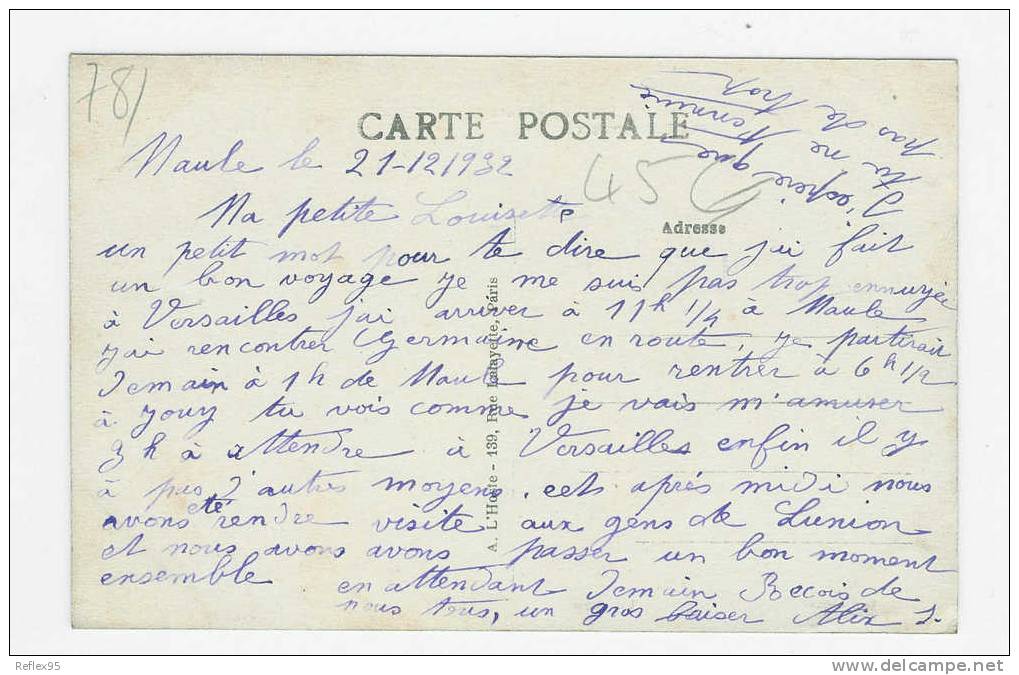 78/
CARTE POSTALE
Maule le 21-12/932
45
Ma petite Louisette
Adresse
un petit mot pour te dire que j'ai fait
un bon voyage je me suis pas trop ennuyée
à Versailles jai arriver à 11h 1/4 à Maule
j'ai rencontrer Germaine en route, je partirai
demain à 1h de Maule pour rentrer à 6h 1/2
à Jouy tu vois comme je vais m'amuser
3h à attendre à Versailles enfin il y
à pas d'autres moyens. cets après midi nous
avons été rendre visite aux gens de Lunion
et nous avons avons passer un bon moment
ensemble
en attendant demain Recois de
nous tous, un gros baiser Alix J.
J'espère que
tu ne t'ennuie
pas de trop
A. L'Hoste - 139, Rue Lafayette, Paris
Reflex95
www.delcampe.net